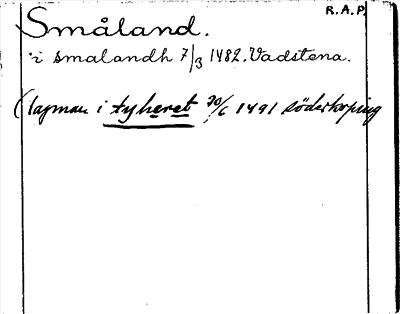 R.A.P.
Småland.
i smalandh 7/3 1482. Vadstena.
(lagman i tyheret 20/6 1491 söderkoping